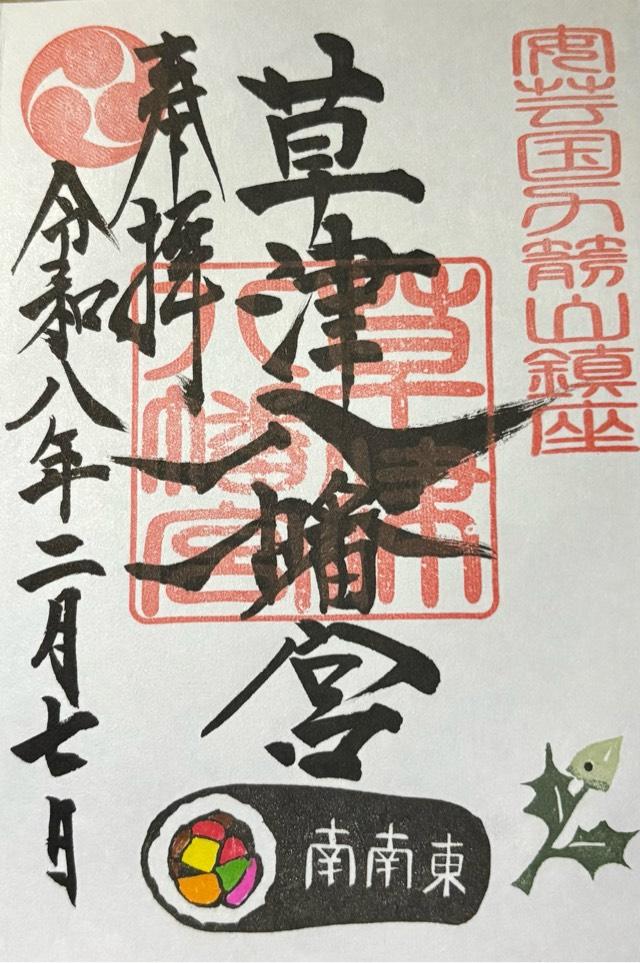 安芸国力箭山鎮座
草津八幡宮
草津
八幡宮
奉拝
令和八年二月七日
南南東